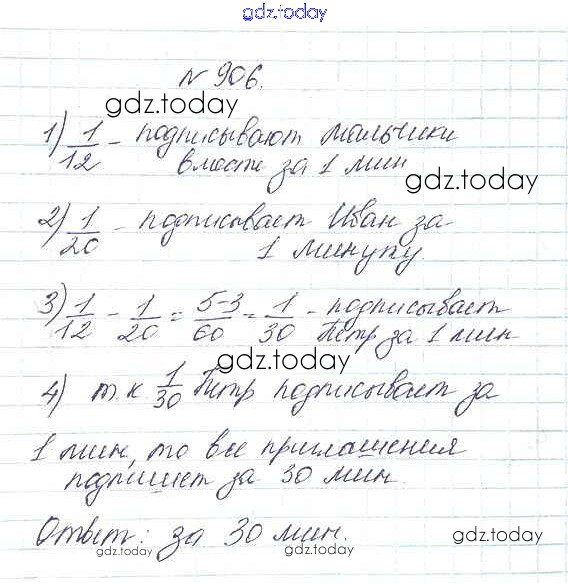 gdz.today
№ 906.
gdz.today
1) 1/12 - подписывают мальчики
вместе за 1 мин
gdz.today
2) 1/20 - подписывает Иван за
1 минуту.
3) 1/12 - 1/20 = 5-3/60 = 1/30 - подписывает
Пётр за 1 мин
gdz.today
4) т.к. 1/30 Пётр подписывает за
1 мин, то все приглашения
подпишет за 30 мин.
Ответ: за 30 мин.
gdz.today
gdz.today
gdz.today